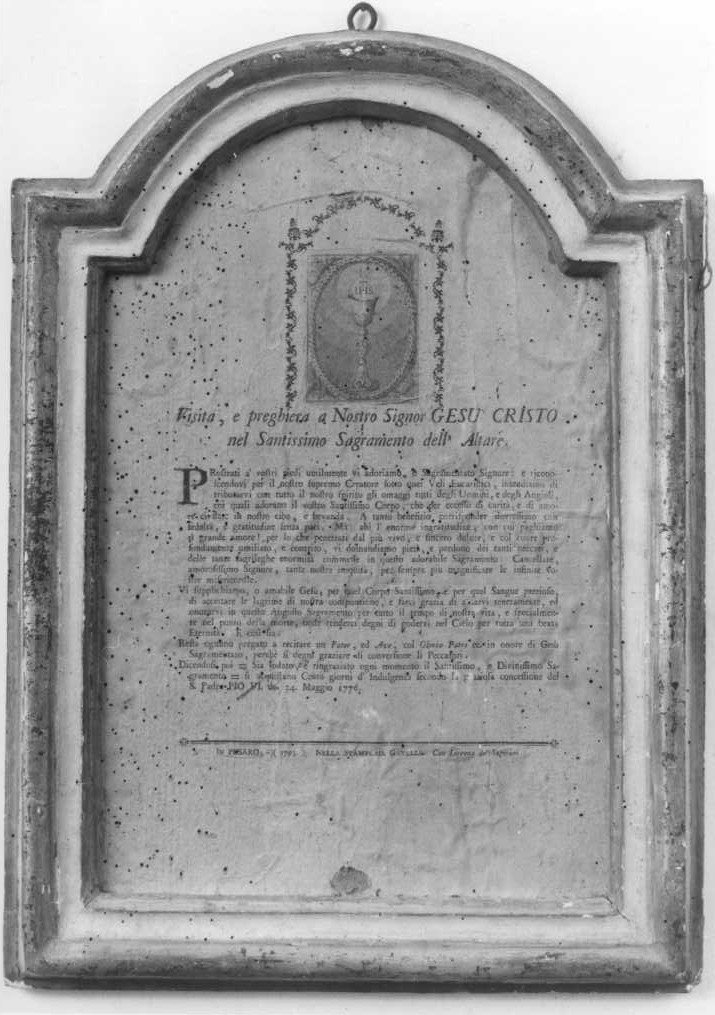 IHS
Visita, e preghiera a Nostro Signor GESU' CRISTO
nel Santissimo Sagramento dell' Altare.
PRostrati a' vostri piedi umilmente vi adoriamo, o Sagramentato Signore: e ricono-
scendovi per il nostro supremo Creatore sotto quei Veli Eucaristici, intendiamo di
tributarvi con tutto il nostro spirito gli omaggi tutti degli Uomini, e degli Angioli,
coi quali adoriamo il vostro Santissimo Corpo, che per eccesso di carità, e di amo-
re in nostro cibo, e bevanda. A tanto benefizio,
infinita, gratitudine senza pari. Ma ahi! l' enorme ingratitudine, con cui paghiamo
sì grande amore! per lo che penetrati dal più vivo, e sincero dolore, e col cuore pro-
fondamente umiliato, e compito, vi domandiamo pietà, e perdono dei tanti peccati, e
delle tante sagrileghe enormità commesse in questo adorabile Sagramento. Cancellate,
amorosissimo Signore, tante nostre iniquità, per sempre più magnificare le infinite vo-
stre misericordie.
Vi supplichiamo, o amabile Gesù, per quel Corpo Santissimo, e per quel Sangue prezioso,
di accettare le lagrime di nostra compunzione, e farci grazia di amarvi teneramente, ed
onorarvi in questo Augusto Sagramento per tutto il tempo di nostra vita, e specialmen-
te nel punto della morte, onde renderci degni di godervi nel Cielo per tutta una beata
Eternità. E così sia.
Resta ognuno pregato a recitare un Pater, ed Ave, col Gloria Patri ec. in onore di Gesù
Sagramentato, perchè si degni graziare di conversione li Peccatori.
Dicendosi poi = Sia lodato, e ringraziato ogni momento il Santissimo, e Divinissimo Sa-
gramento = si acquistano Cento giorni d' Indulgenza secondo la pietosa concessione del
S. Padre PIO VI. de' 24. Maggio 1776.
In PESARO, )( 1792. )( NELLA STAMPERIA GAVELLI. Con Licenza de' Superiori.